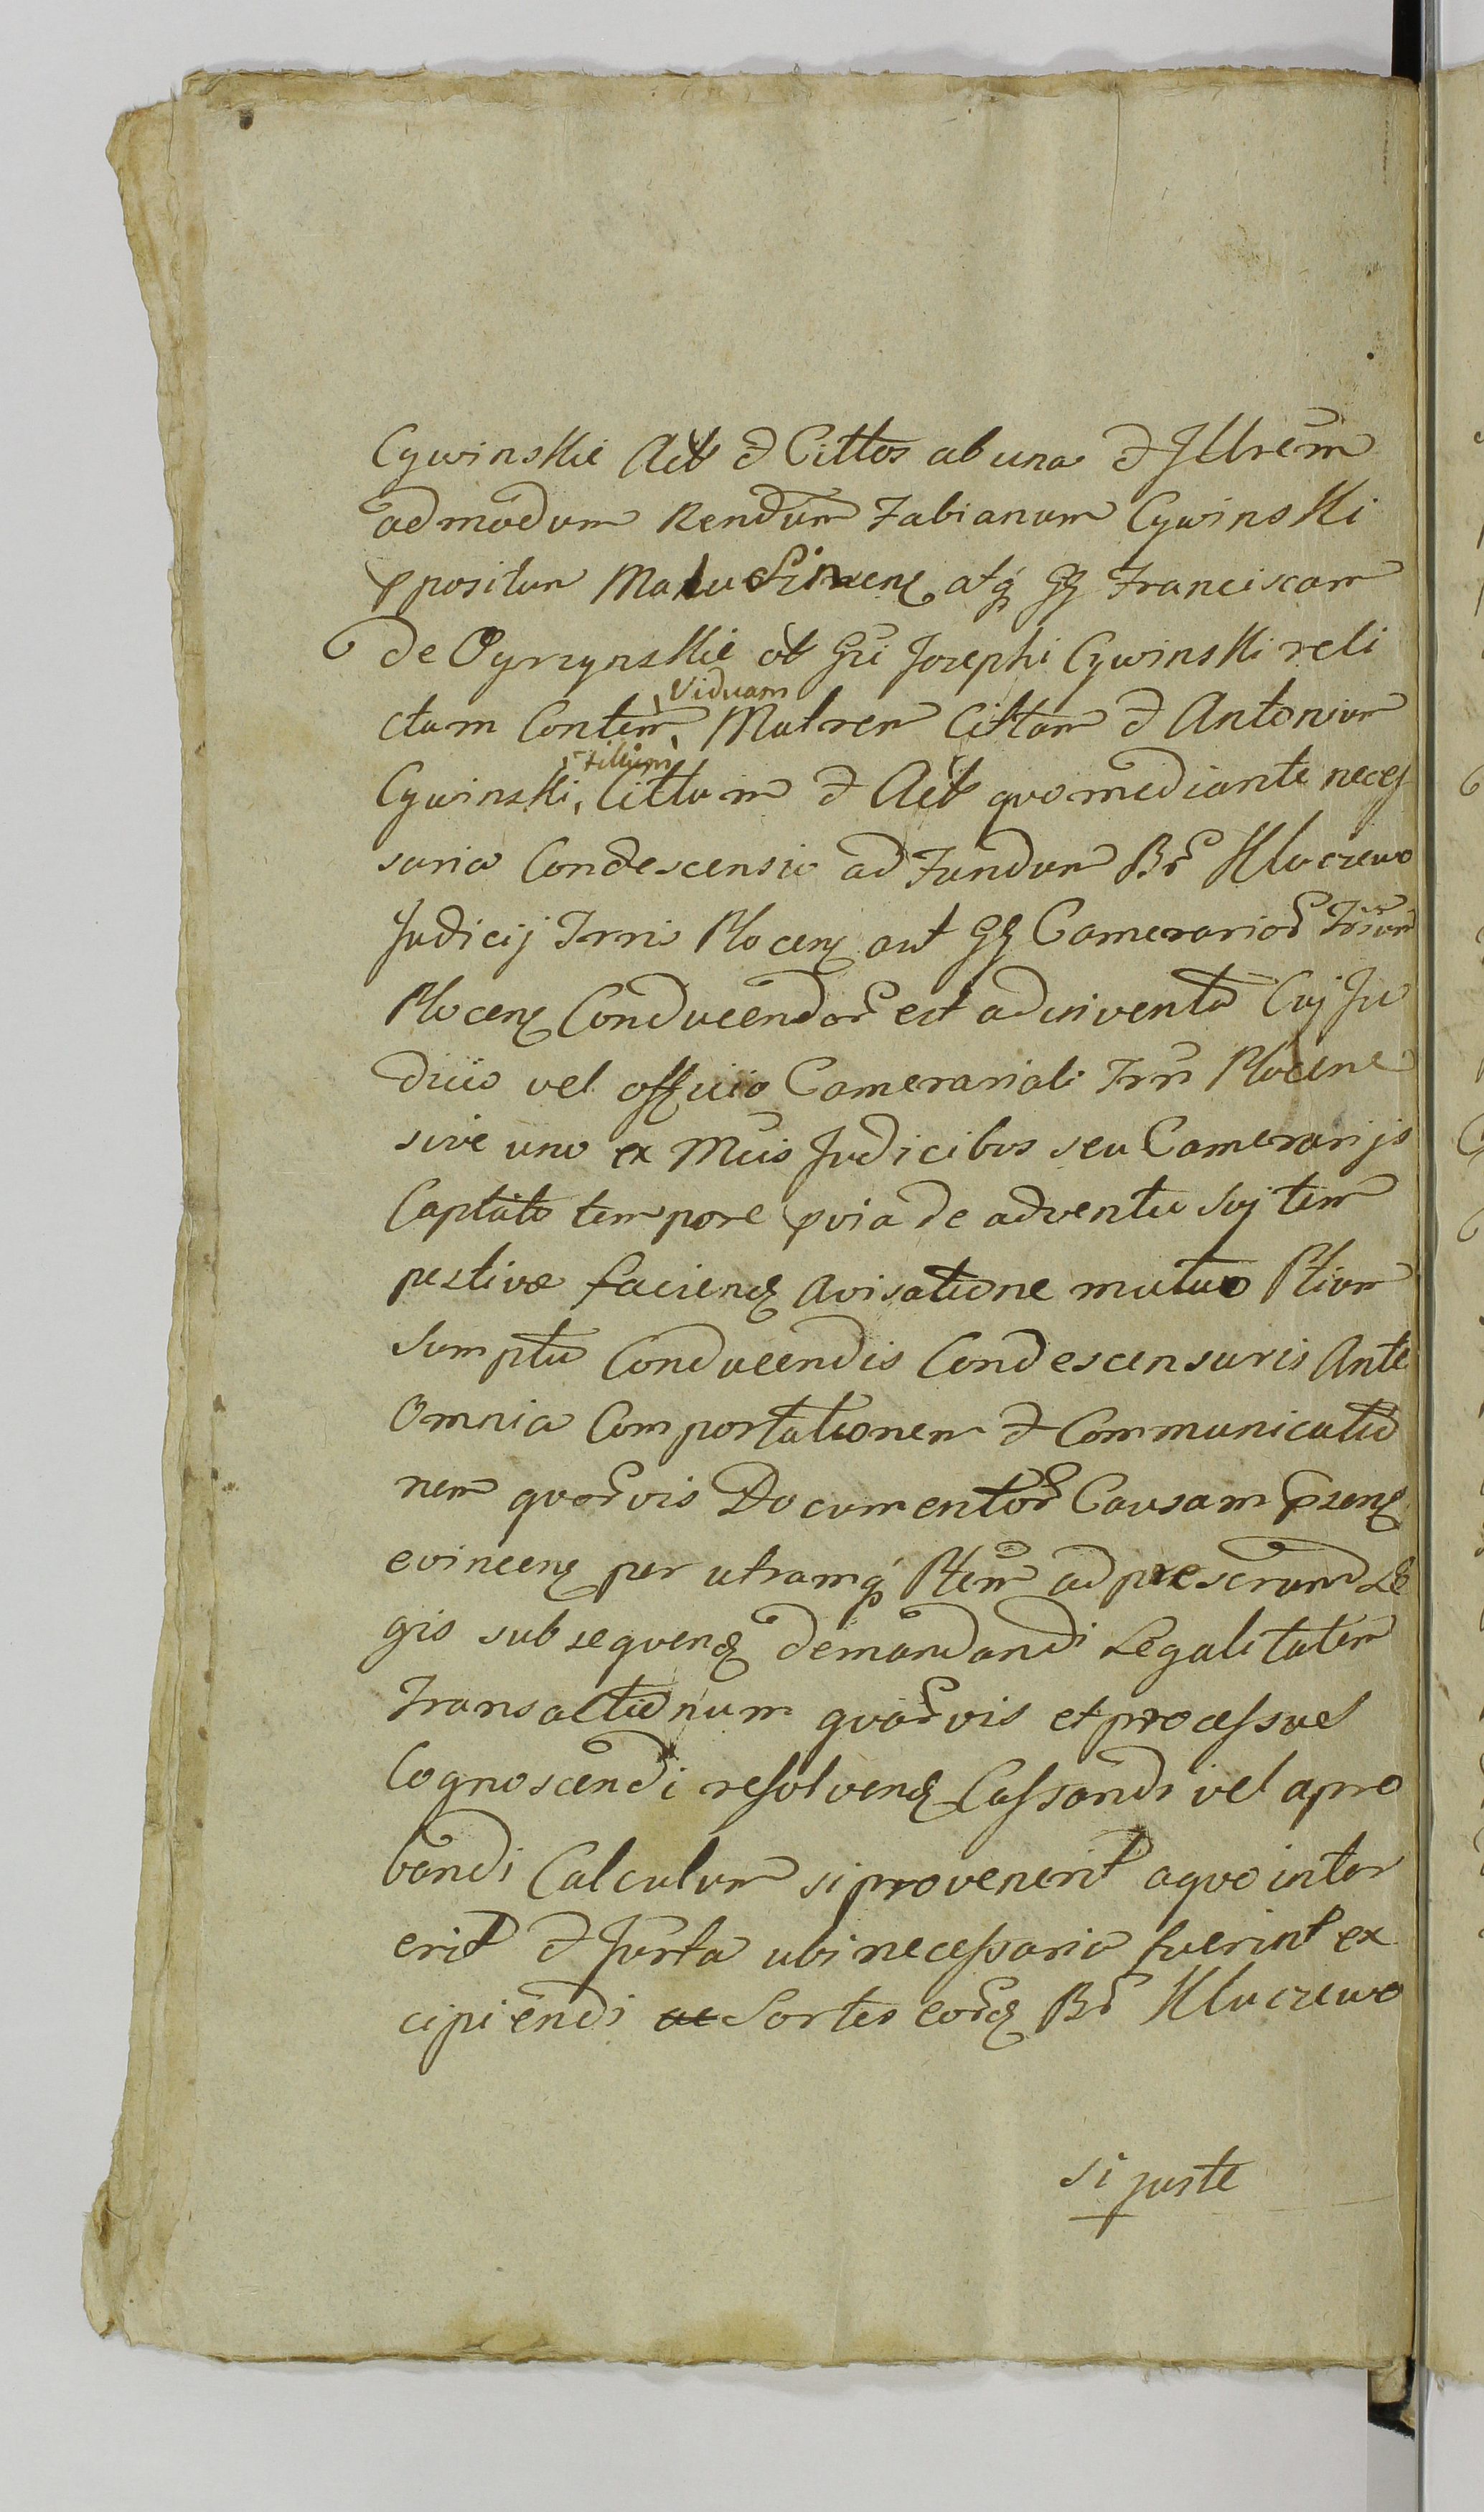 Cywinskie Act & Cittos ab una & Jllrem
admodum Rendum Fabianum Cywinski
Ppositum Maluszinenѕ atq Gg Franciscam
de Oyrzynskie ol Gsi Josephi Cywinski reli
ctam Contem, Viduam Matrem Cittam & Antonium
Cywinski, Filium Cittum & Act quo mediante neces
saria Condescensio ad Fundum Br Kluczewo
Judicij Trris Plocens aut Gg Camerarior Trrum
Plocens Conducendor est adinventa Cuj Ju
dicio vel officio Camerariali Trri Plocens
sive uno ex Mcis Judicibus seu Camerarijs
Captato tempore pvia de adventu suj tem
pestivae faciend Avisatione mutuo Ptium
sumptu Conducendis Condescensuris Ante
Omnia Comportationem & Communicatio
nem quorvis Documentor Causam psens
evincens per utramq Ptem ad praescrum Le
gis subsequend demandandi Legalitatem
Transactionum quorvis et processus
Cognoscendi resolvend Cassandi vel apro
bandi Calculum si provenerit aquo inter
erit & Jurta ubi necessaria fuerint ex
cipiendi ac Sortes eord Br Kluczewo
si juste